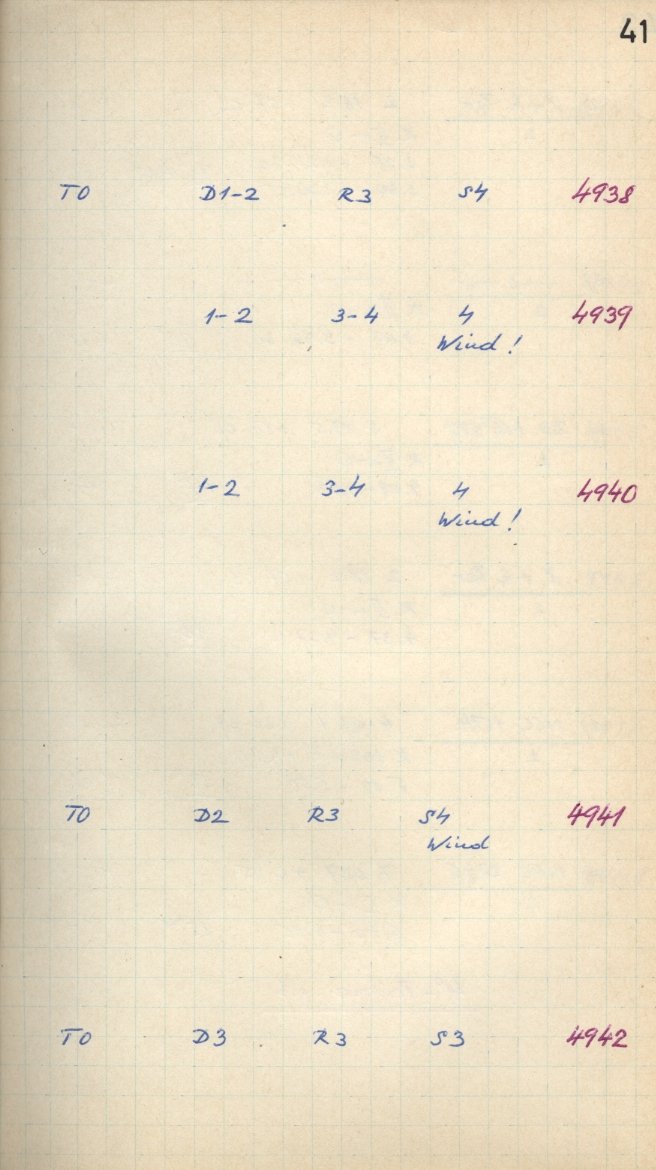 41
T0 D1-2 R3 S4 4938
1-2 3-4 4 4939
Wind!
1-2 3-4 4 4940
Wind!
T0 D2 R3 S4 4941
Wind
T0 D3 R3 S3 4942